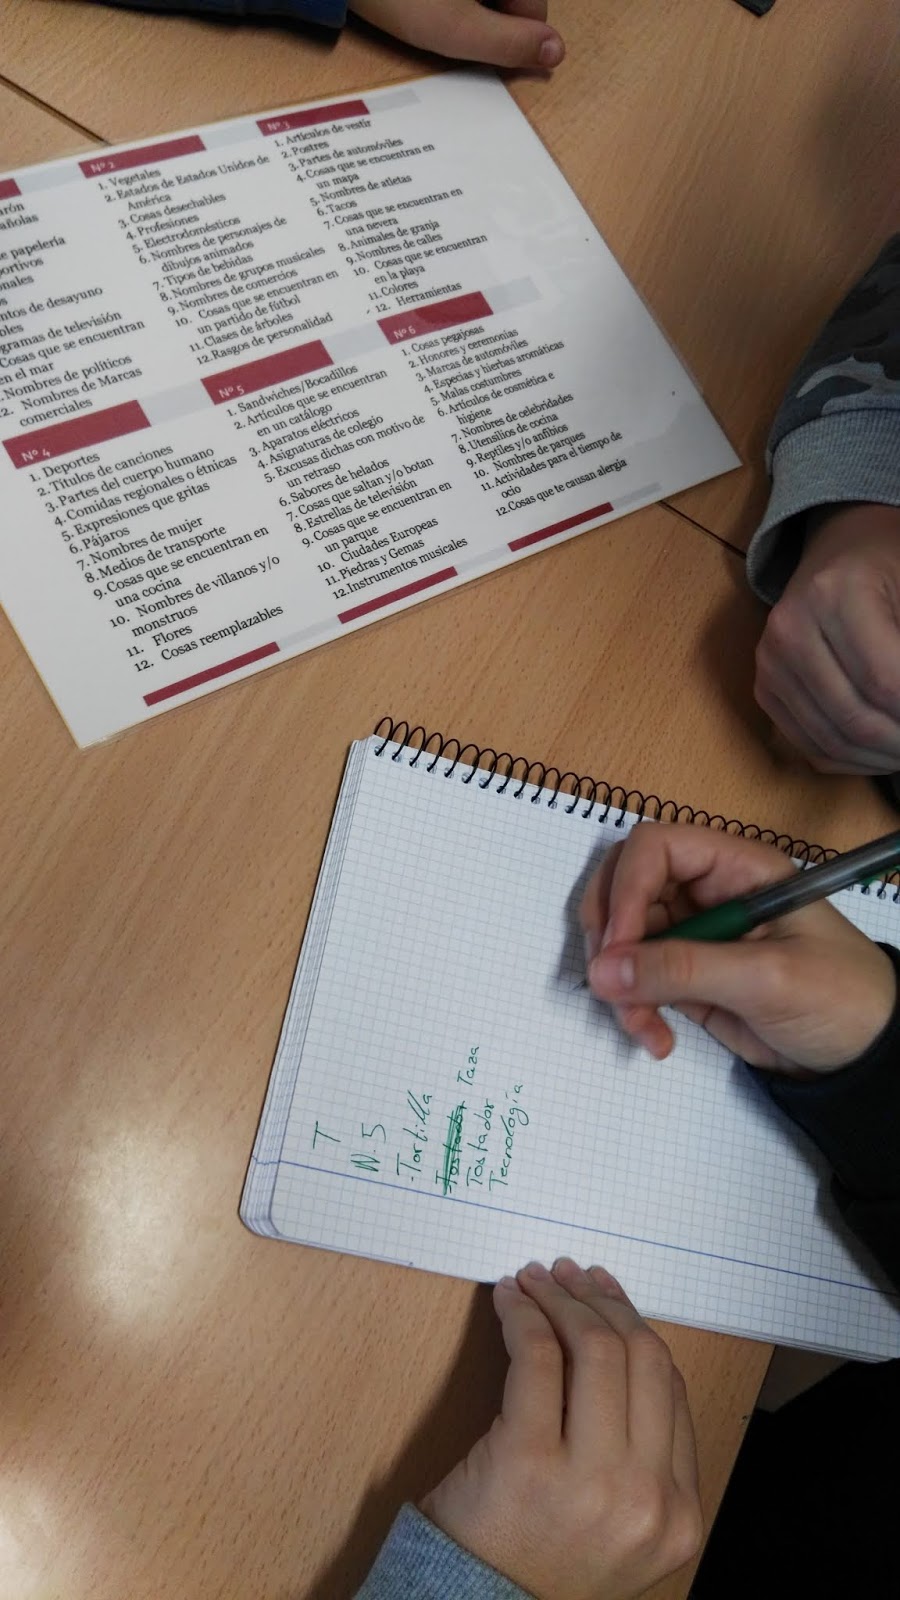 arón
añolas
e papelería
portivos
onales
s
ntos de desayuno
bles
gramas de televisión
Cosas que se encuentran
en el mar
Nombres de políticos
2. Nombres de Marcas
comerciales
Nº 2
1. Vegetales
2. Estados de Estados Unidos de
América
3. Cosas desechables
4. Profesiones
5. Electrodomésticos
6. Nombres de personajes de
dibujos animados
7. Tipos de bebidas
8. Nombres de grupos musicales
9. Nombres de comercios
10. Cosas que se encuentran en
un partido de fútbol
11. Clases de árboles
12. Rasgos de personalidad
Nº 3
1. Artículos de vestir
2. Postres
3. Partes de automóviles
4. Cosas que se encuentran en
un mapa
5. Nombres de atletas
6. Tacos
7. Cosas que se encuentran en
una nevera
8. Animales de granja
9. Nombres de calles
10. Cosas que se encuentran
en la playa
11. Colores
12. Herramientas
Nº 4
1. Deportes
2. Títulos de canciones
3. Partes del cuerpo humano
4. Comidas regionales o étnicas
5. Expresiones que gritas
6. Pájaros
7. Nombres de mujer
8. Medios de transporte
9. Cosas que se encuentran en
una cocina
10. Nombres de villanos y/o
monstruos
11. Flores
12. Cosas reemplazables
Nº 5
1. Sandwiches/Bocadillos
2. Artículos que se encuentran
en un catálogo
3. Aparatos eléctricos
4. Asignaturas de colegio
5. Excusas dichas con motivo de
un retraso
6. Sabores de helados
7. Cosas que saltan y/o botan
8. Estrellas de televisión
9. Cosas que se encuentran en
un parque
10. Ciudades Europeas
11. Piedras y Gemas
12. Instrumentos musicales
Nº 6
1. Cosas pegajosas
2. Honores y ceremonias
3. Marcas de automóviles
4. Especias y hierbas aromáticas
5. Malas costumbres
6. Artículos de cosmética e
higiene
7. Nombres de celebridades
8. Utensilios de cocina
9. Reptiles y/o anfibios
10. Nombres de parques
11. Actividades para el tiempo de
ocio
12. Cosas que te causan alergia
T
N. 5
- Tortilla
- Tostador Taza
Tostador
Tecnología